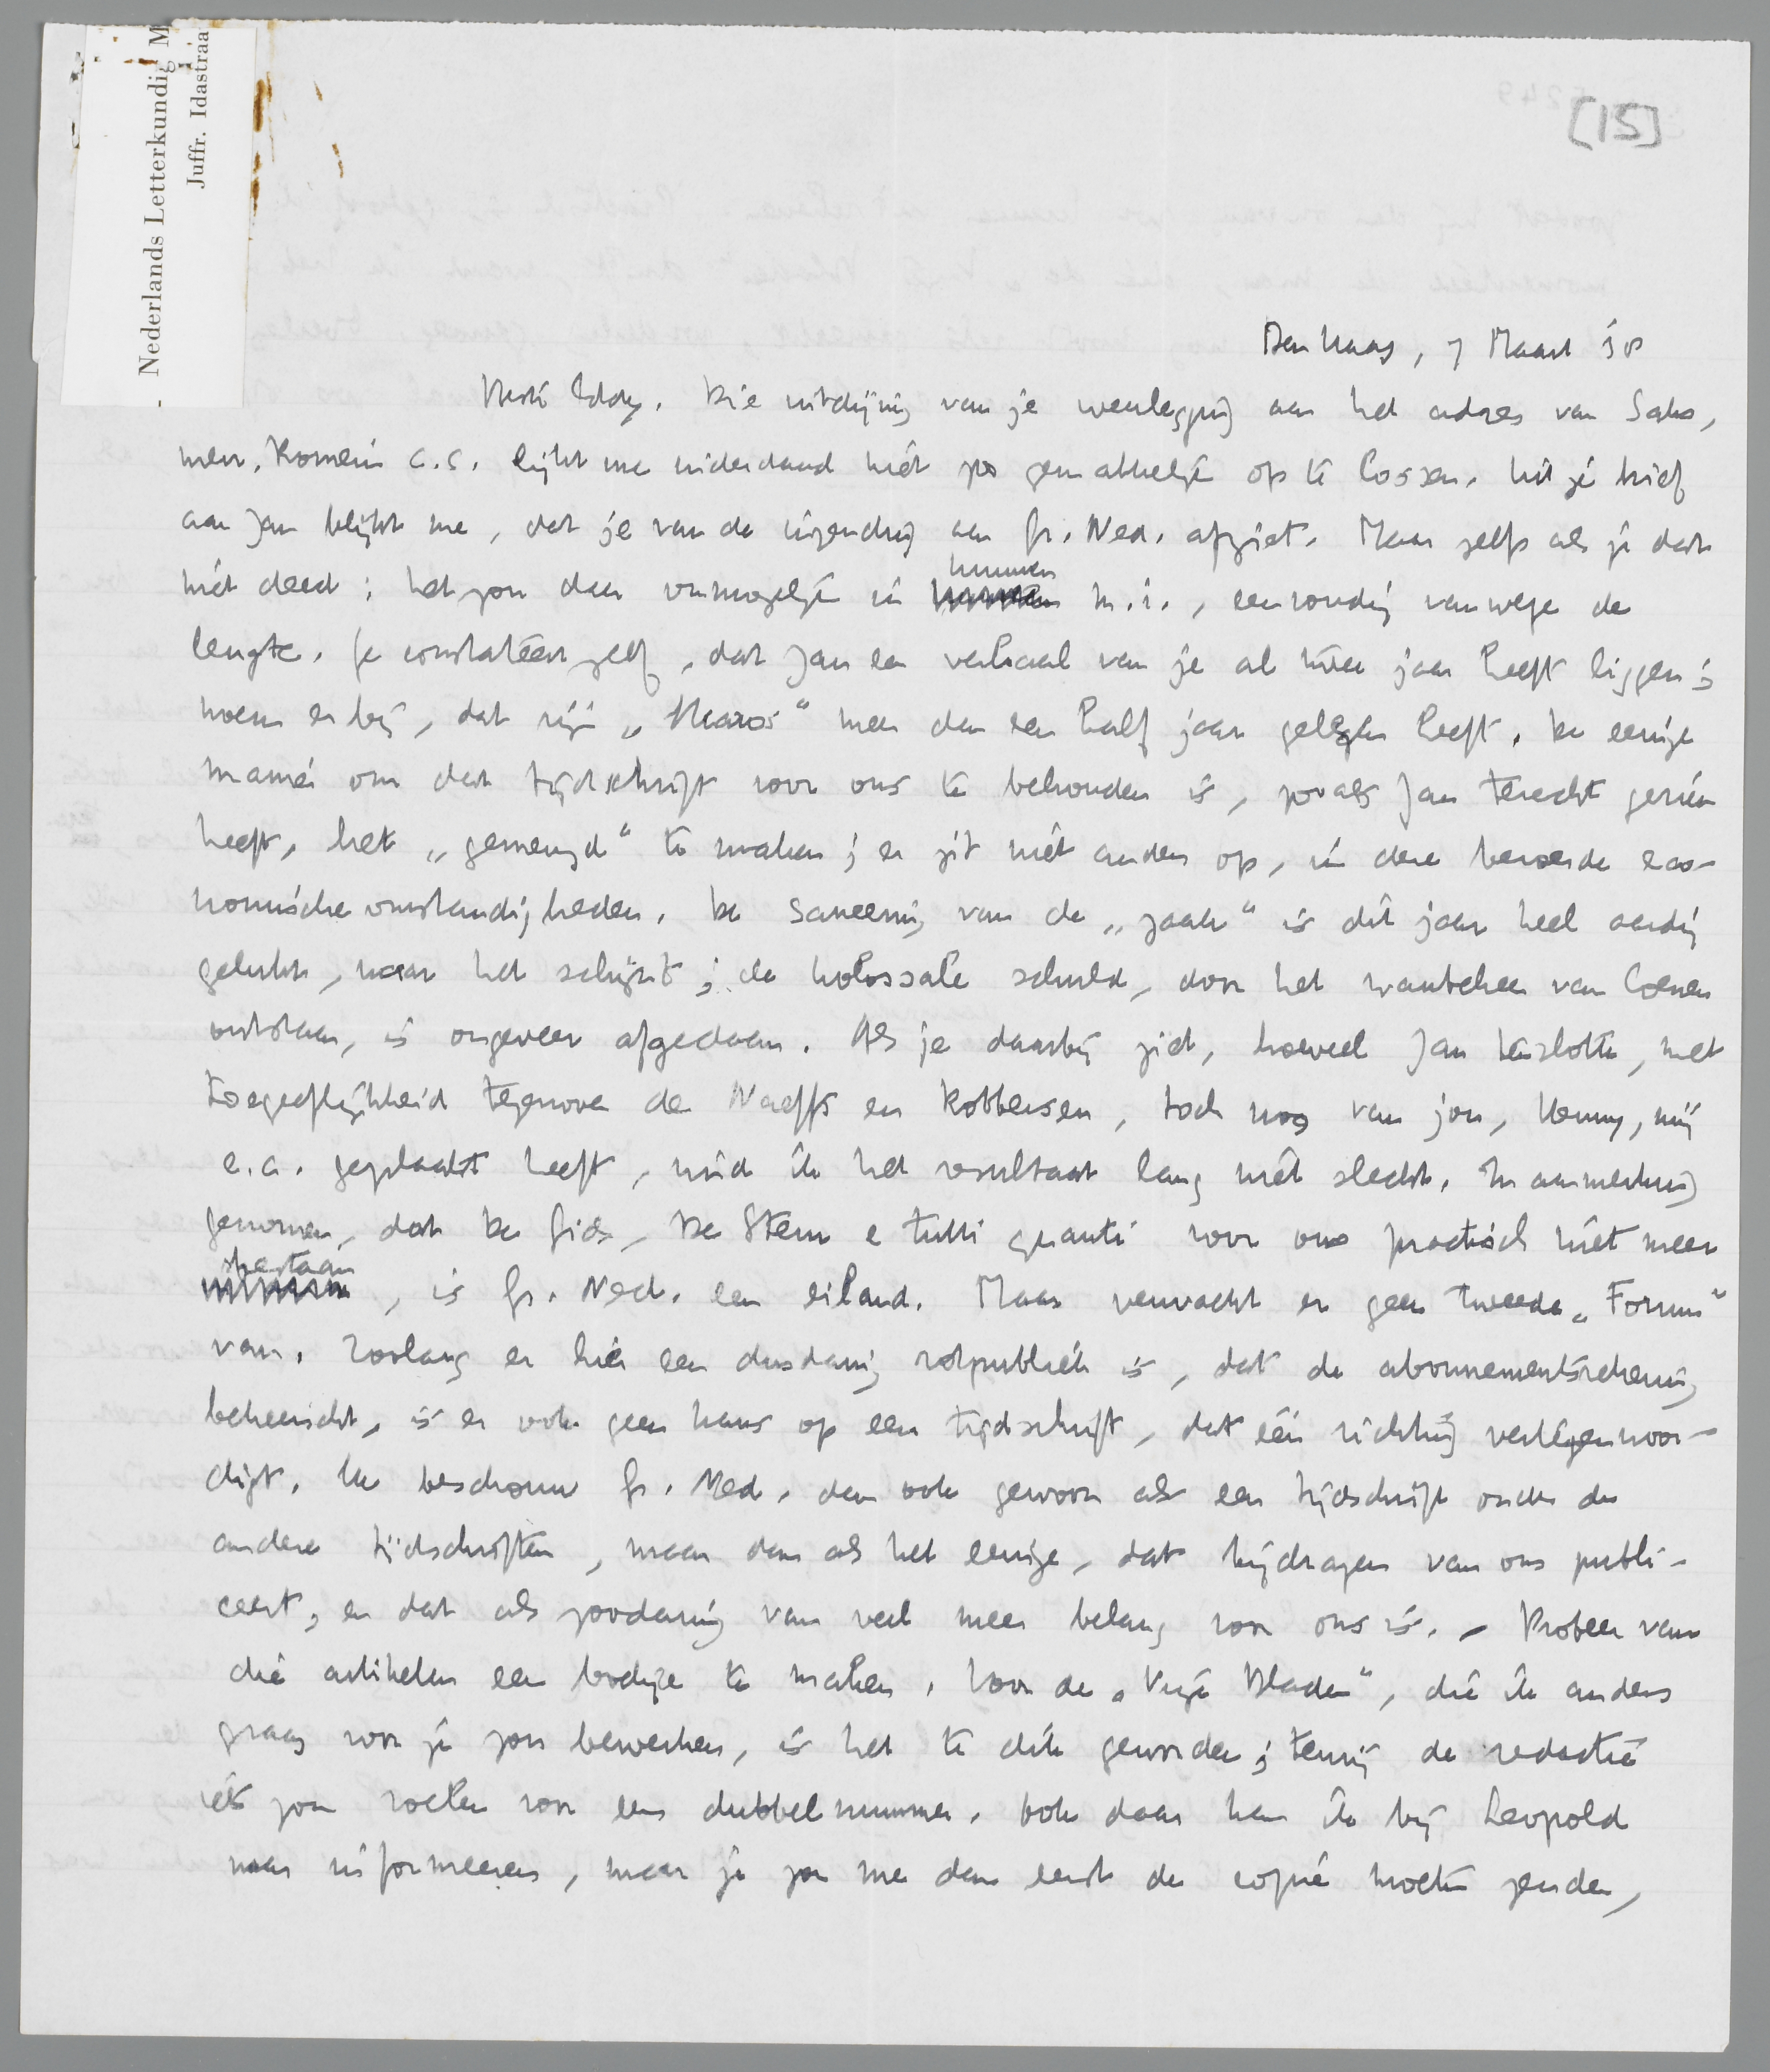 Nederlands Letterkundig M
Juffr. Idastraa
[15]
Den Haag, 7 Maart '38
Beste Eddy. Die uitdijing van je weerlegging aan het adres van Salo,
men, Romein c.s. lijkt me inderdaad niet zoo gemakkelijk op te lossen. Uit je brief
aan Jan blijkt me, dat je van de inzending aan Gr. Ned. afziet. Maar zelfs als je dat
niet deed: het zou daar onmogelijk in kunnen m.i., eenvoudig vanwege de
lengte. Je constateert zelf, dat Jan een verhaal van je al twee jaar heeft liggen;
noem erbij, dat mijn „Maros" meer dan een half jaar gelegen heeft. De eenige
manier om dat tijdschrift voor ons te behouden is, zooals Jan terecht gezien
heeft, het „gemengd" te maken; er zit niet anders op, in deze beroerde eco-
nomische omstandigheden. De saneering van de „zaak" is dit jaar heel aardig
gelukt, naar het schijnt; de kolossale schuld, door het wanbeheer van Coenen
ontstaan, is ongeveer afgedaan. Als je daarbij ziet, hoeveel Jan tenslotte, met
toegeeflijkheid tegenover de Naeffs en Robbersen, toch nog van jou, Henny, mij
e.a. geplaatst heeft, vind ik het resultaat lang niet slecht. In aanmerking
genomen, dat De Gids, De Stem e tutti quanti voor ons practisch niet meer
bestaan, is Gr. Ned. een eiland. Maar verwacht er geen tweede „Forum"
van. Zoolang er hier een dusdanig rotpubliek is, dat de abonnementsrekening
beheerscht, is er ook geen kans op een tijdschrift, dat één richting vertegenwoor-
digt. Ik beschouw Gr. Ned. dan ook gewoon als een tijdschrift onder de
andere tijdschriften, maar dan als het eenige, dat bijdragen van ons publi-
ceert, en dat als zoodanig van veel meer belang voor ons is. - Probeer van
die artikelen een boekje te maken. Voor de „Vrije Bladen", die ik anders
graag voor je zou bewerken, is het te dik geworden; tenzij de redactie
iets zou voelen voor een dubbelnummer. Ook daar kan ik bij Leopold
naar informeeren, maar je zou me dan eerst de copie moeten zenden,